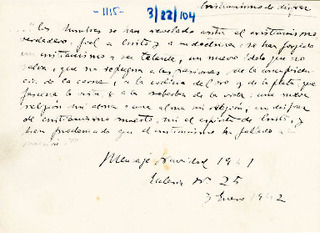 -1115-
3/22/104
Cristianismo de disfraz
"Los hombres se han rebelado contra el cristianismo
verdadero, fiel a Cristo y a su doctrina: se han forjado
un cristianismo a su talante, un nuevo ídolo que no
salva, que no repugna a las pasiones de la concupiscen-
cia de la carne, a la codicia del oro y de la plata que
fascina la vista, y a la soberbia de la vida; una nueva
religión sin alma o una alma sin religión, un disfraz
de cristianismo muerto, sin el espíritu de Cristo, y
han proclamado que el cristianismo ha faltado a su
misión".
Mensaje Navidad 1941
Ecclesia Nº 25
3 Enero 1942